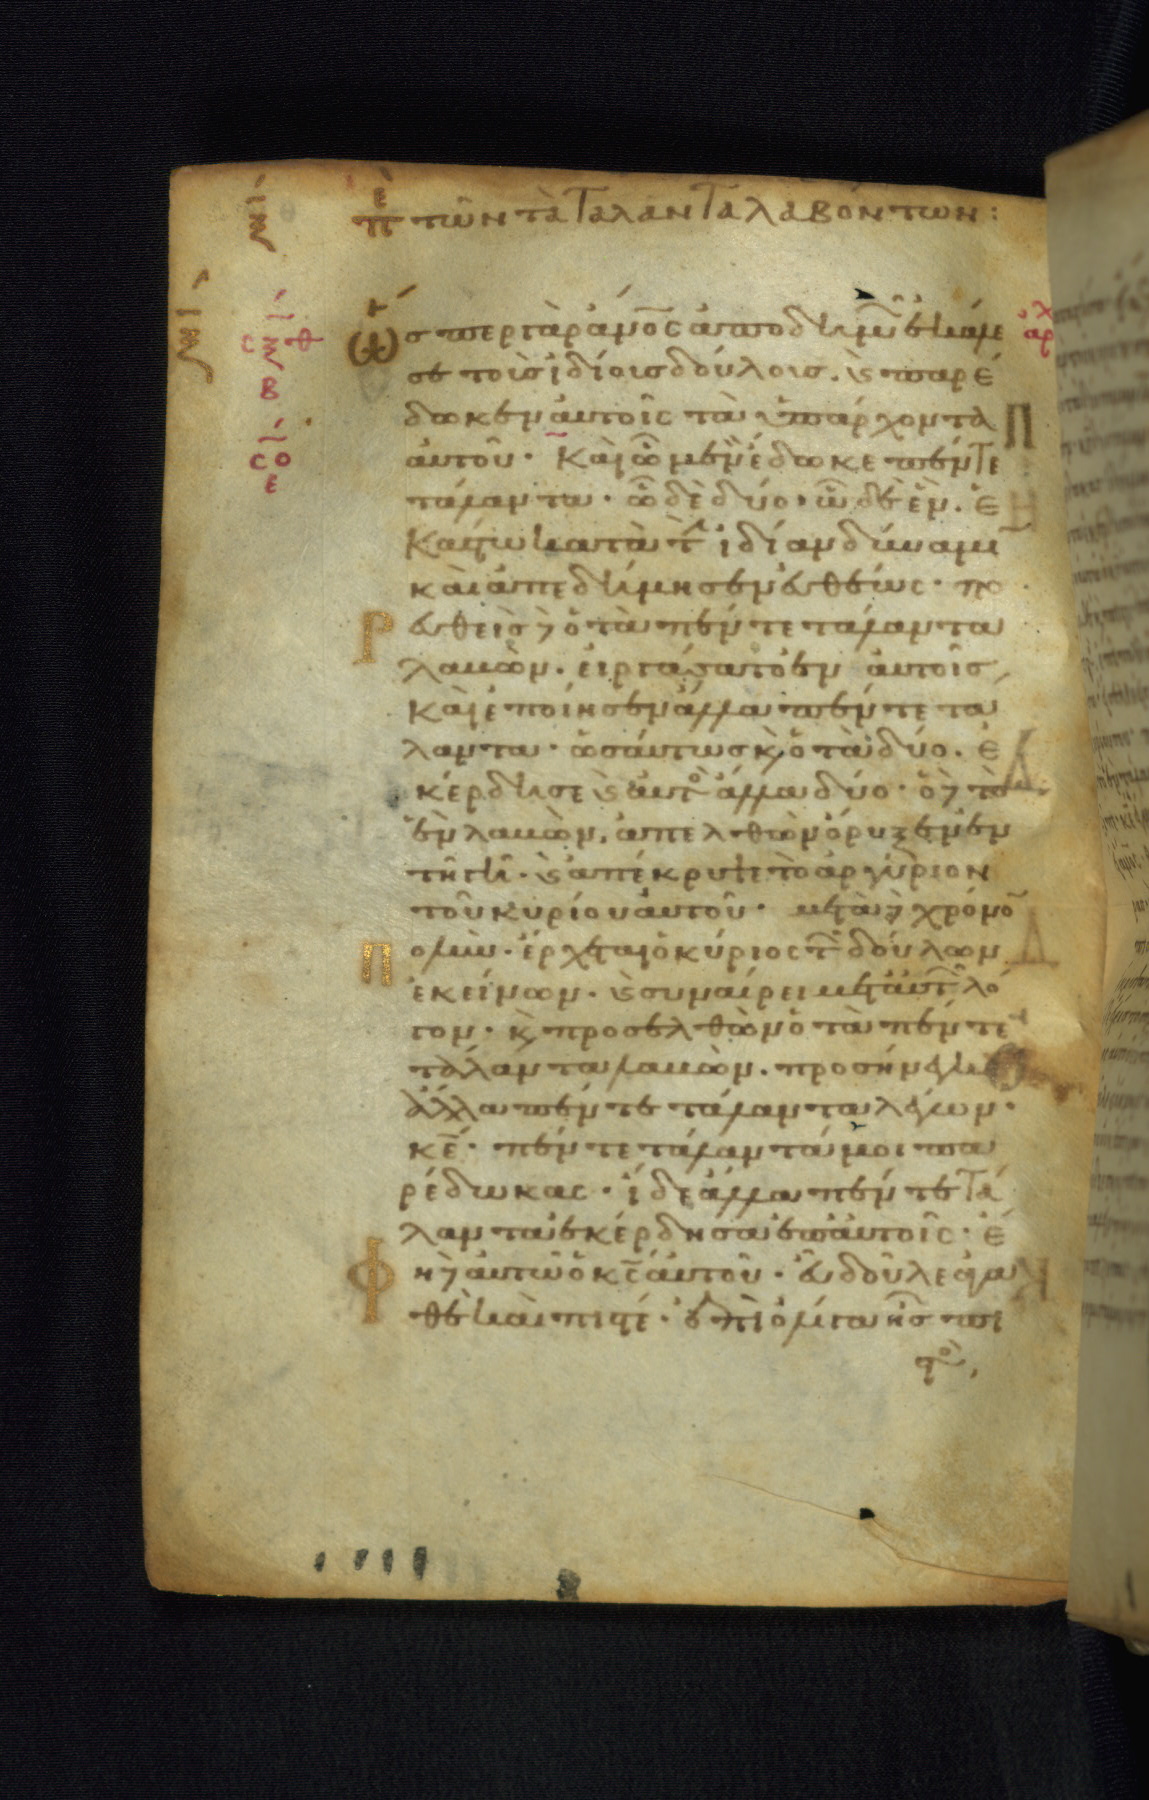 πε τῶν τὰ Τάλαντα λαβόντων:
Ὥσπερ γὰρ ἄνο̅ς ἀποδημῶν ἐκάλε
σε τοὺς ἰδίοις δούλοις. ϗ παρέ
δωκεν αὐτοῖς τὰ ὑπάρχοντα
αὐτοῦ· Καὶ ᾧ μὲν ἔδωκε πέντε
τάλαντα· ᾧ δὲ δύο· ᾧ δὲ ἕν. ἑ
κάστω κατὰ τ ἰδίαν δύναμι
καὶ ἀπεδήμησεν εὐθέως· πο
ρευθεὶς δ ὁ τὰ πέντε τάλαντα
λαβὼν. εἰργάσατο ἐν αὐτοῖς,
Καὶ ἐποίησεν ἄλλα πέντε τα
λαντα· ὡσάντως κ ὁ τὰ δύο. ἐ
κέρδησε ϗ αὐτὸ ἄλλα δύο· ὁ δ τὸ
ἓν λαβὼν, ἀπελθὼν ὄρυξεν ἐν
τῆ γῆ· ϗ ἀπέκρυψε τὸ ἀργύριον
τοῦ κυρίου αὐτοῦ· μετὰ δ χρόνο
πολὺν· ἔρχεται ὁ κύριος τ δούλων
ἐκείνων· ϗ συναίρει μετ αὐτ λό
γον· κ προσελθὼν ὁ τὰ πέντε
τάλαντα λαβὼν. προσήνεγκεν
ἄλλα πέντε τάλαντα λέγων·
κε̅· πέντε τάλαντά μοι πα
ρέδωκας· ἴδε ἄλλα πέντε Τά
λαντα ἐκέρδησα ἐπ αὐτοῖς· ἔ
φη δ αὐτῶ ὁ κς̅ αὐτοῦ· εὖ δοῦλε ἀγα
θὲ καὶ πιστέ· ἐπὶ ὀλίγα ἦς πι
στὸς,